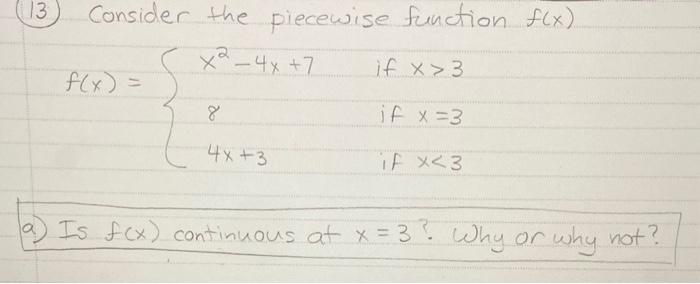 13) Consider the piecewise function f(x)
x² - 4x + 7 if x > 3
f(x) = { 8 if x = 3
4x + 3 if x < 3
a) Is f(x) continuous at x = 3? Why or why not?